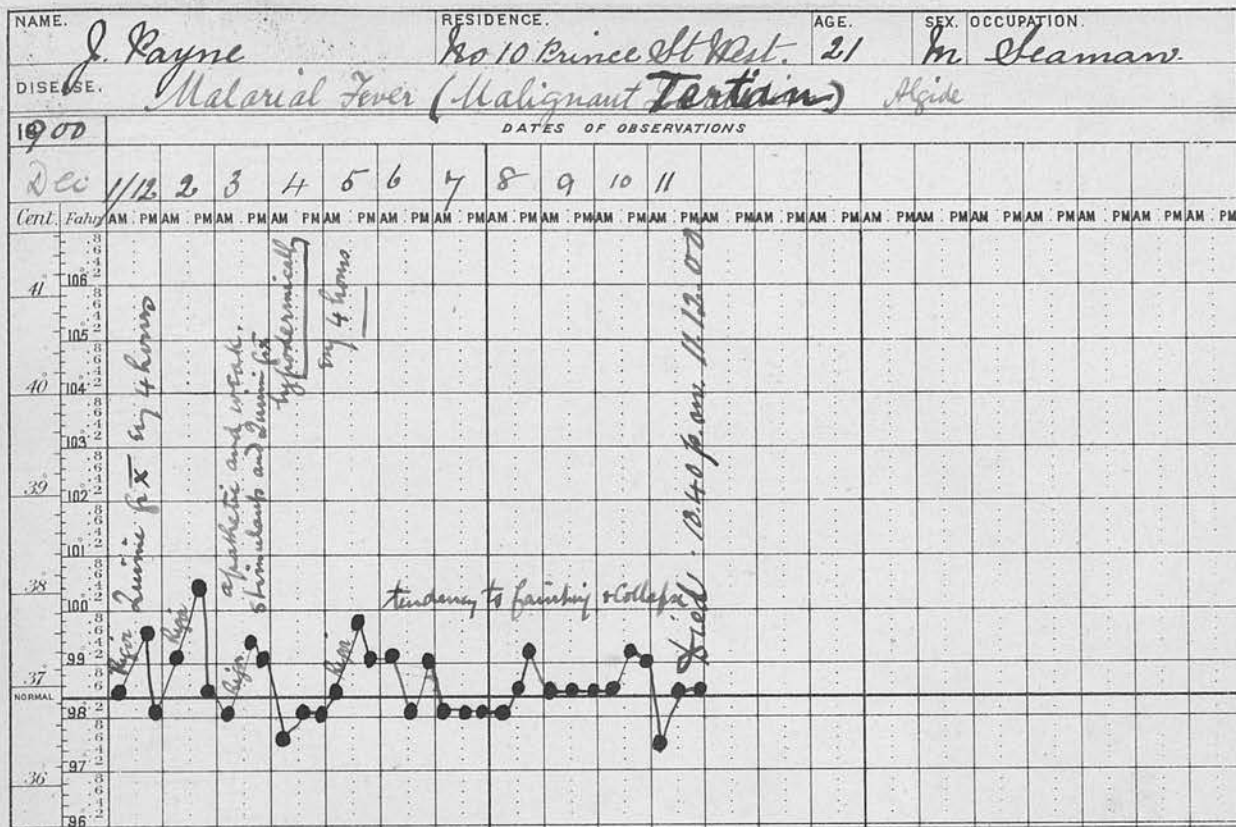 NAME. RESIDENCE. AGE. SEX. OCCUPATION.
J. Payne No 10 Prince St West. 21 M Seaman.
DISEASE. Malarial Fever (Malignant Tertian) Algide
1900 DATES OF OBSERVATIONS
Dec 1/12 2 3 4 5 6 7 8 9 10 11
Cent. Fahr. AM PM AM PM AM PM AM PM AM PM AM PM AM PM AM PM AM PM AM PM AM PM AM PM AM PM AM PM AM PM AM PM AM PM AM PM AM PM AM PM AM PM
41° 106°
105°
40° 104°
103°
39° 102°
101°
38° 100
99
37°
NORMAL
98
97
36°
96
Rigor
Quinine gr x̅ every 4 hours
Rigor
Rigor
apathetic and weak.
Stimulants and Quinine gr x
hypodermically
every 4 hours
Rigor
tendency to fainting & Collapse
Died. 10.40 p.m. 11.12.00